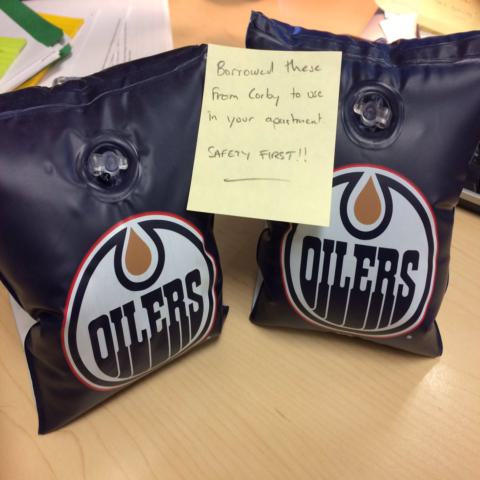 Borrowed these
From Corby to use
in your apartment.
SAFETY FIRST!!
OILERS
OILERS